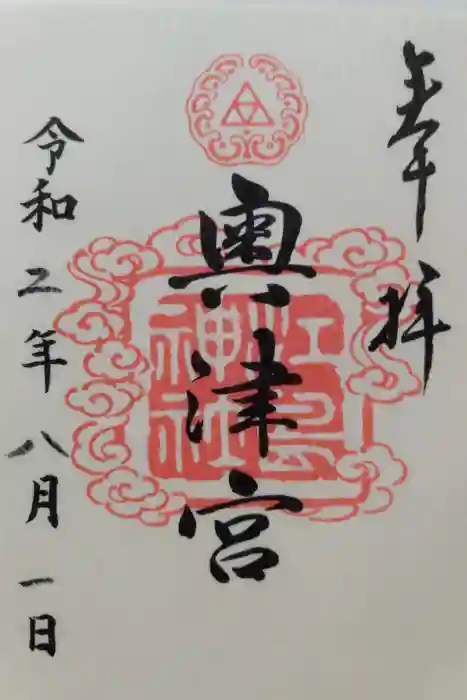 奉拝
奥津宮
江島神社
令和二年八月一日